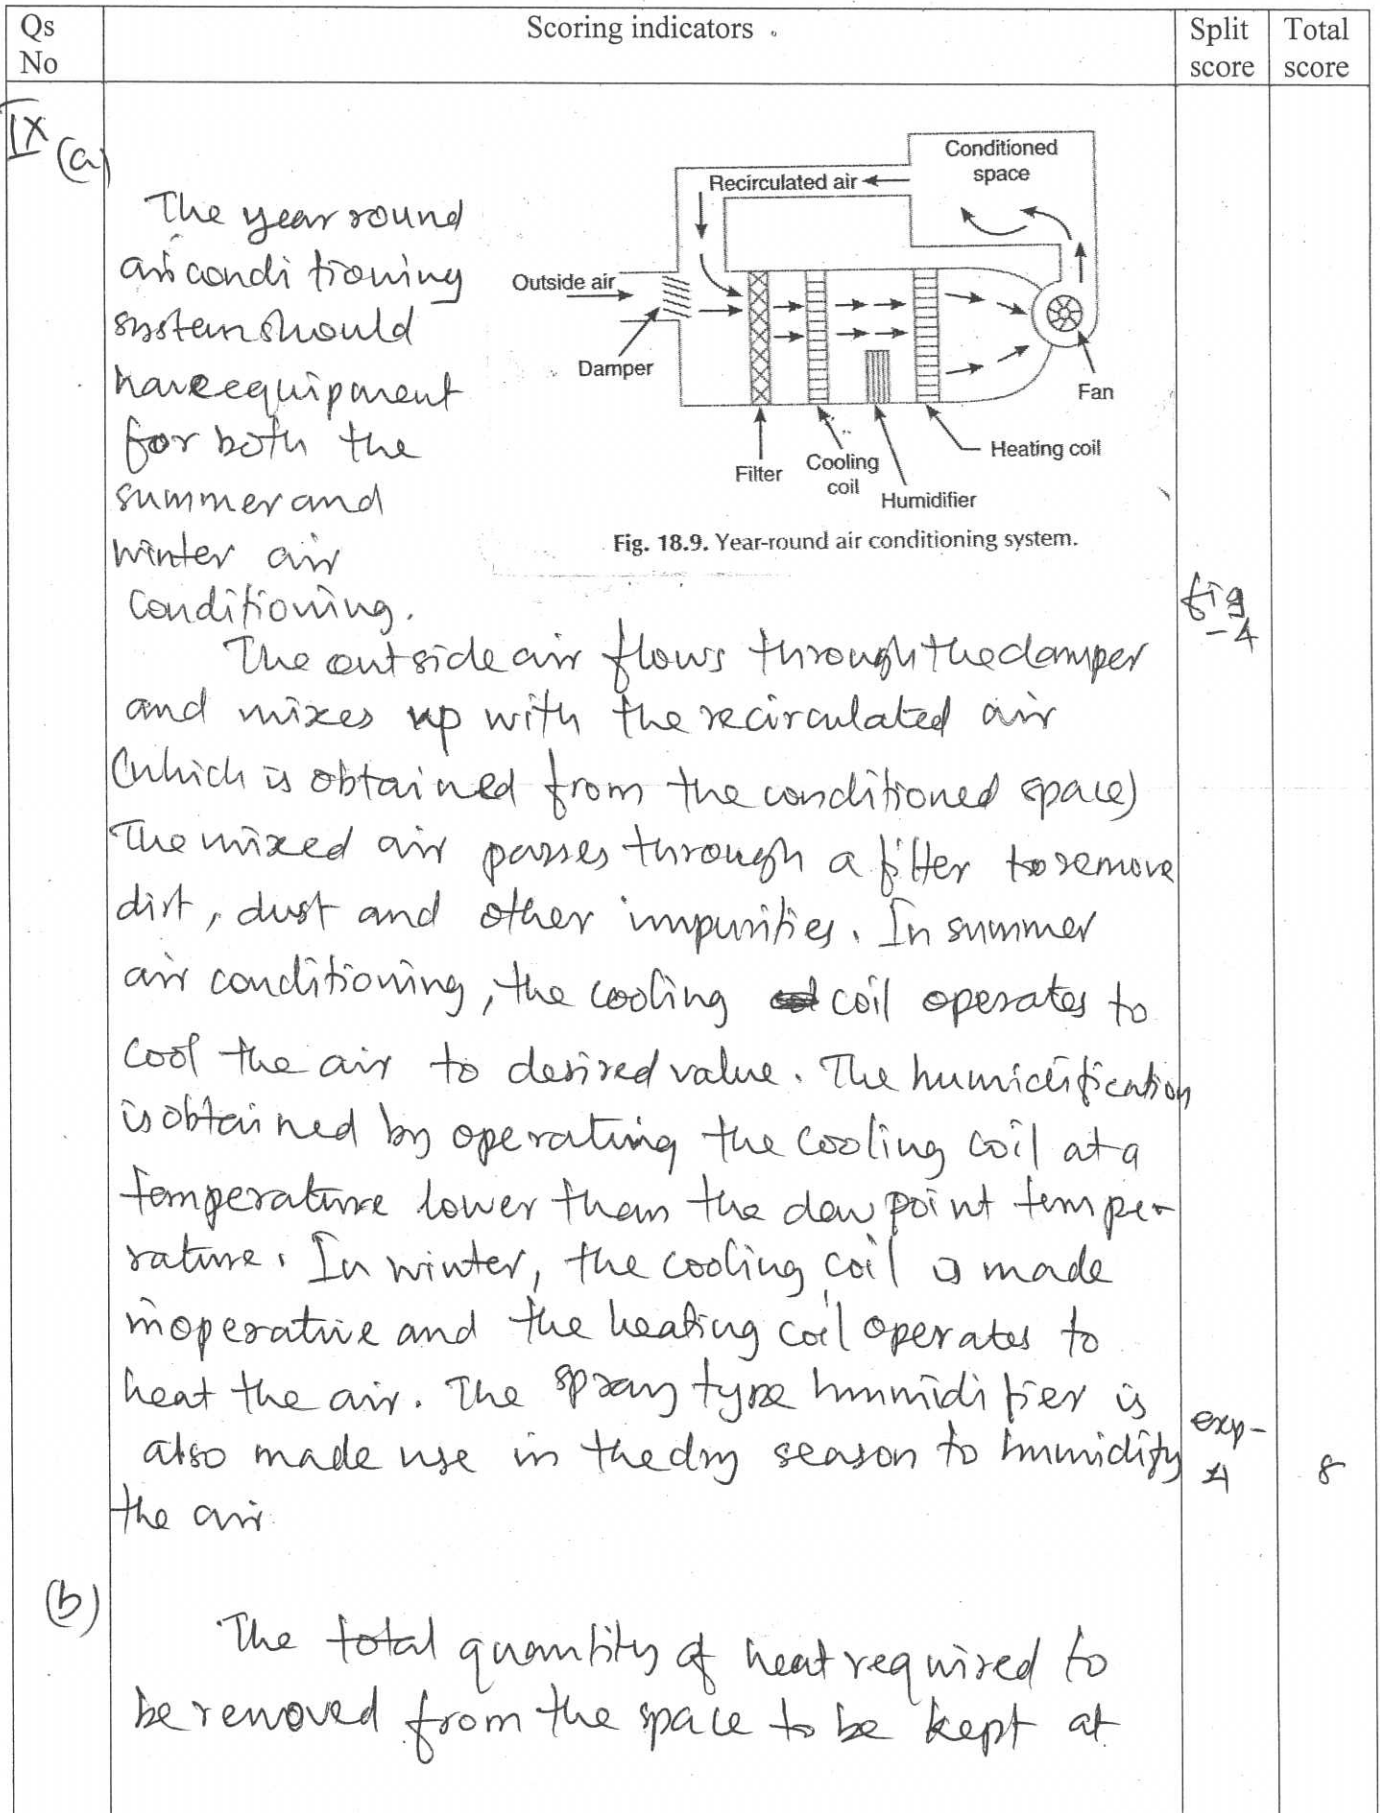 Qs No
Scoring indicators
Split score
Total score
IX (a)
The year round
air conditioning
system should
have equipment
for both the
summer and
winter air
conditioning.
Conditioned
space
Recirculated air
Outside air
Damper
Filter
Cooling
coil
Humidifier
Heating coil
Fan
Fig. 18.9. Year-round air conditioning system.
fig
-4
The outside air flows through the damper
and mixes up with the recirculated air
(which is obtained from the conditioned space)
The mixed air passes through a filter to remove
dirt, dust and other impurities. In summer
air conditioning, the cooling coil operates to
cool the air to desired value. The humidification
is obtained by operating the cooling coil at a
temperature lower than the dew point tempe-
rature. In winter, the cooling coil is made
inoperative and the heating coil operates to
heat the air. The spray type humidifier is
also made use in the dry season to humidify
the air.
exp-
4
8
(b)
The total quantity of heat required to
be removed from the space to be kept at